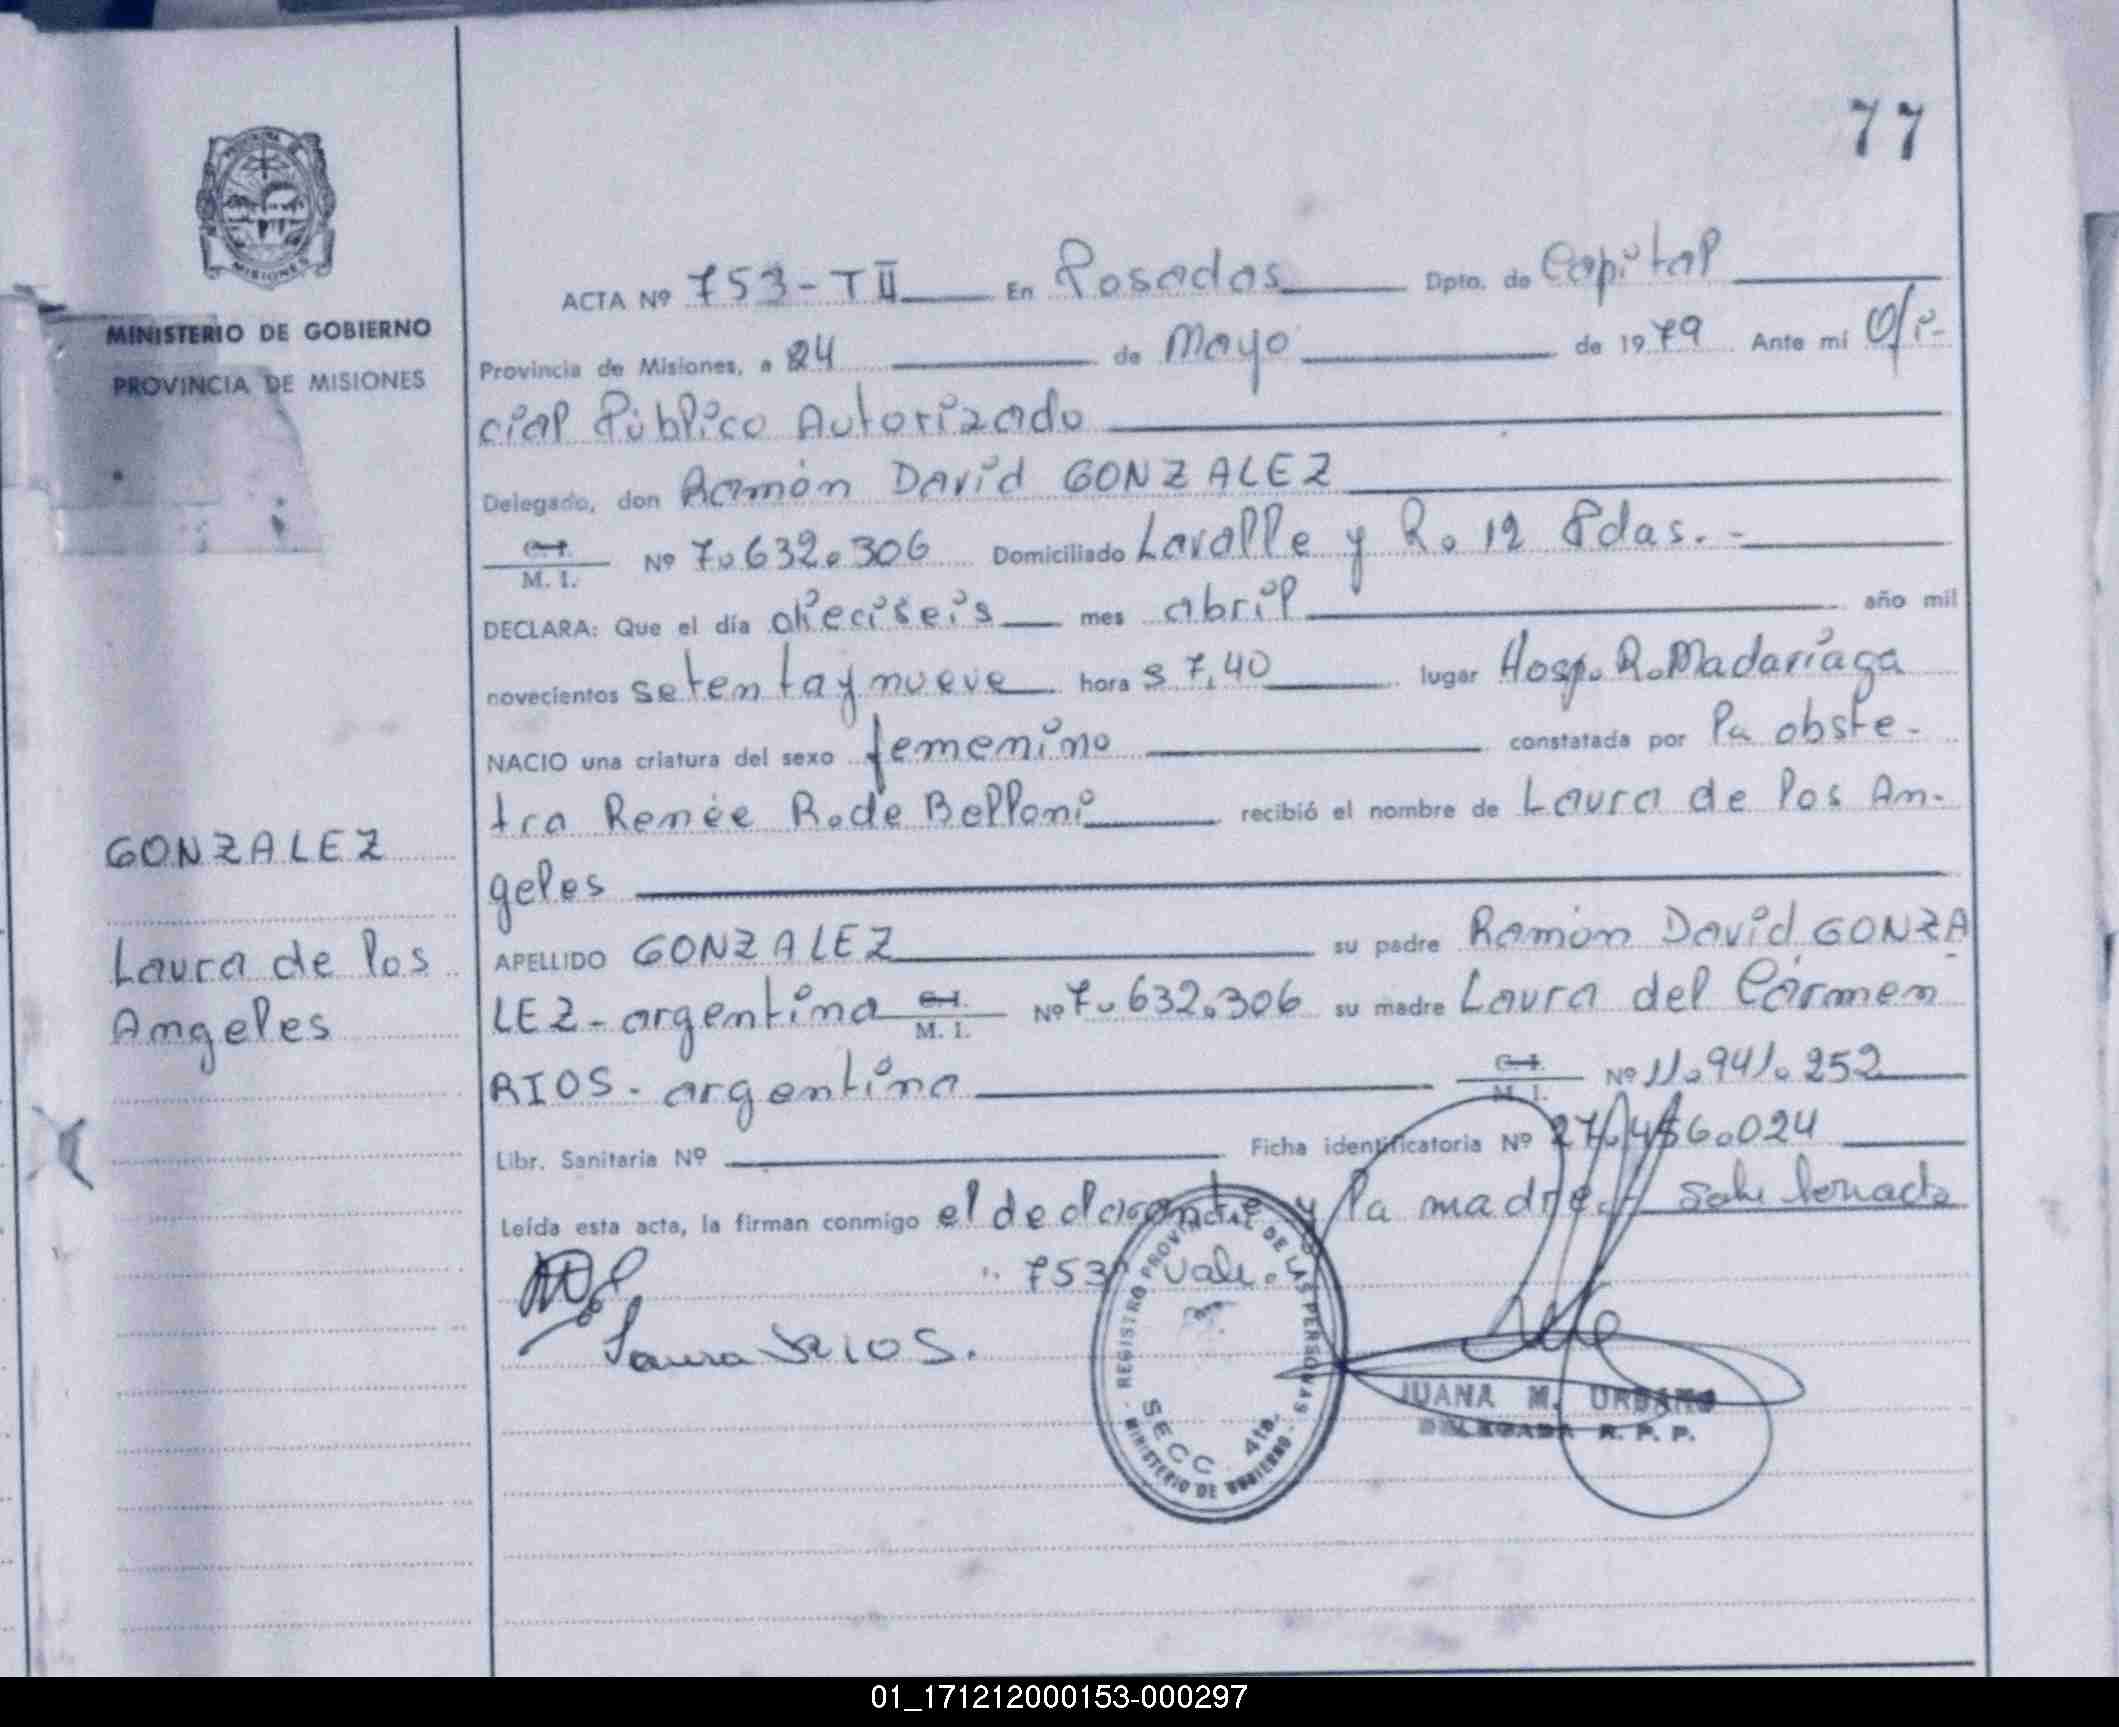 77
MISIONES
MINISTERIO DE GOBIERNO
PROVINCIA DE MISIONES
GONZALEZ
Laura de los
Angeles
ACTA Nº 753-TII En Posadas Dpto. de Capital
Provincia de Misiones, a 24 de Mayo de 1979 Ante mí Ofi-
cial Público Autorizado
Delegado, don Ramón David GONZALEZ
C.I.
M. I. Nº 7.632.306 Domiciliado Lavalle y R. 12 Pdas.-
DECLARA: Que el día dieciseis mes abril año mil
novecientos setenta y nueve hora s 7,40 lugar Hosp. R. Madariaga
NACIO una criatura del sexo femenino constatada por la obste-
tra Renée R. de Belloni recibió el nombre de Laura de los An-
geles
APELLIDO GONZALEZ su padre Ramón David GONZA
LEZ- argentina C.I.
M. I. Nº 7.632.306 su madre Laura del Cármen
RIOS- argentina C.I.
M. I. Nº 11.941.252
Libr. Sanitaria Nº Ficha identificatoria Nº 27.456.024
Leída esta acta, la firman conmigo el declarante y la madre.- Sobre borrado
"753" Vale.
Laura RIOS.
REGISTRO PROVINCIAL DE LAS PERSONAS
SECC. 4ta.
MINISTERIO DE GOBIERNO
JUANA M. URBANO
DELEGADA R. P. P.
01_171212000153-000297